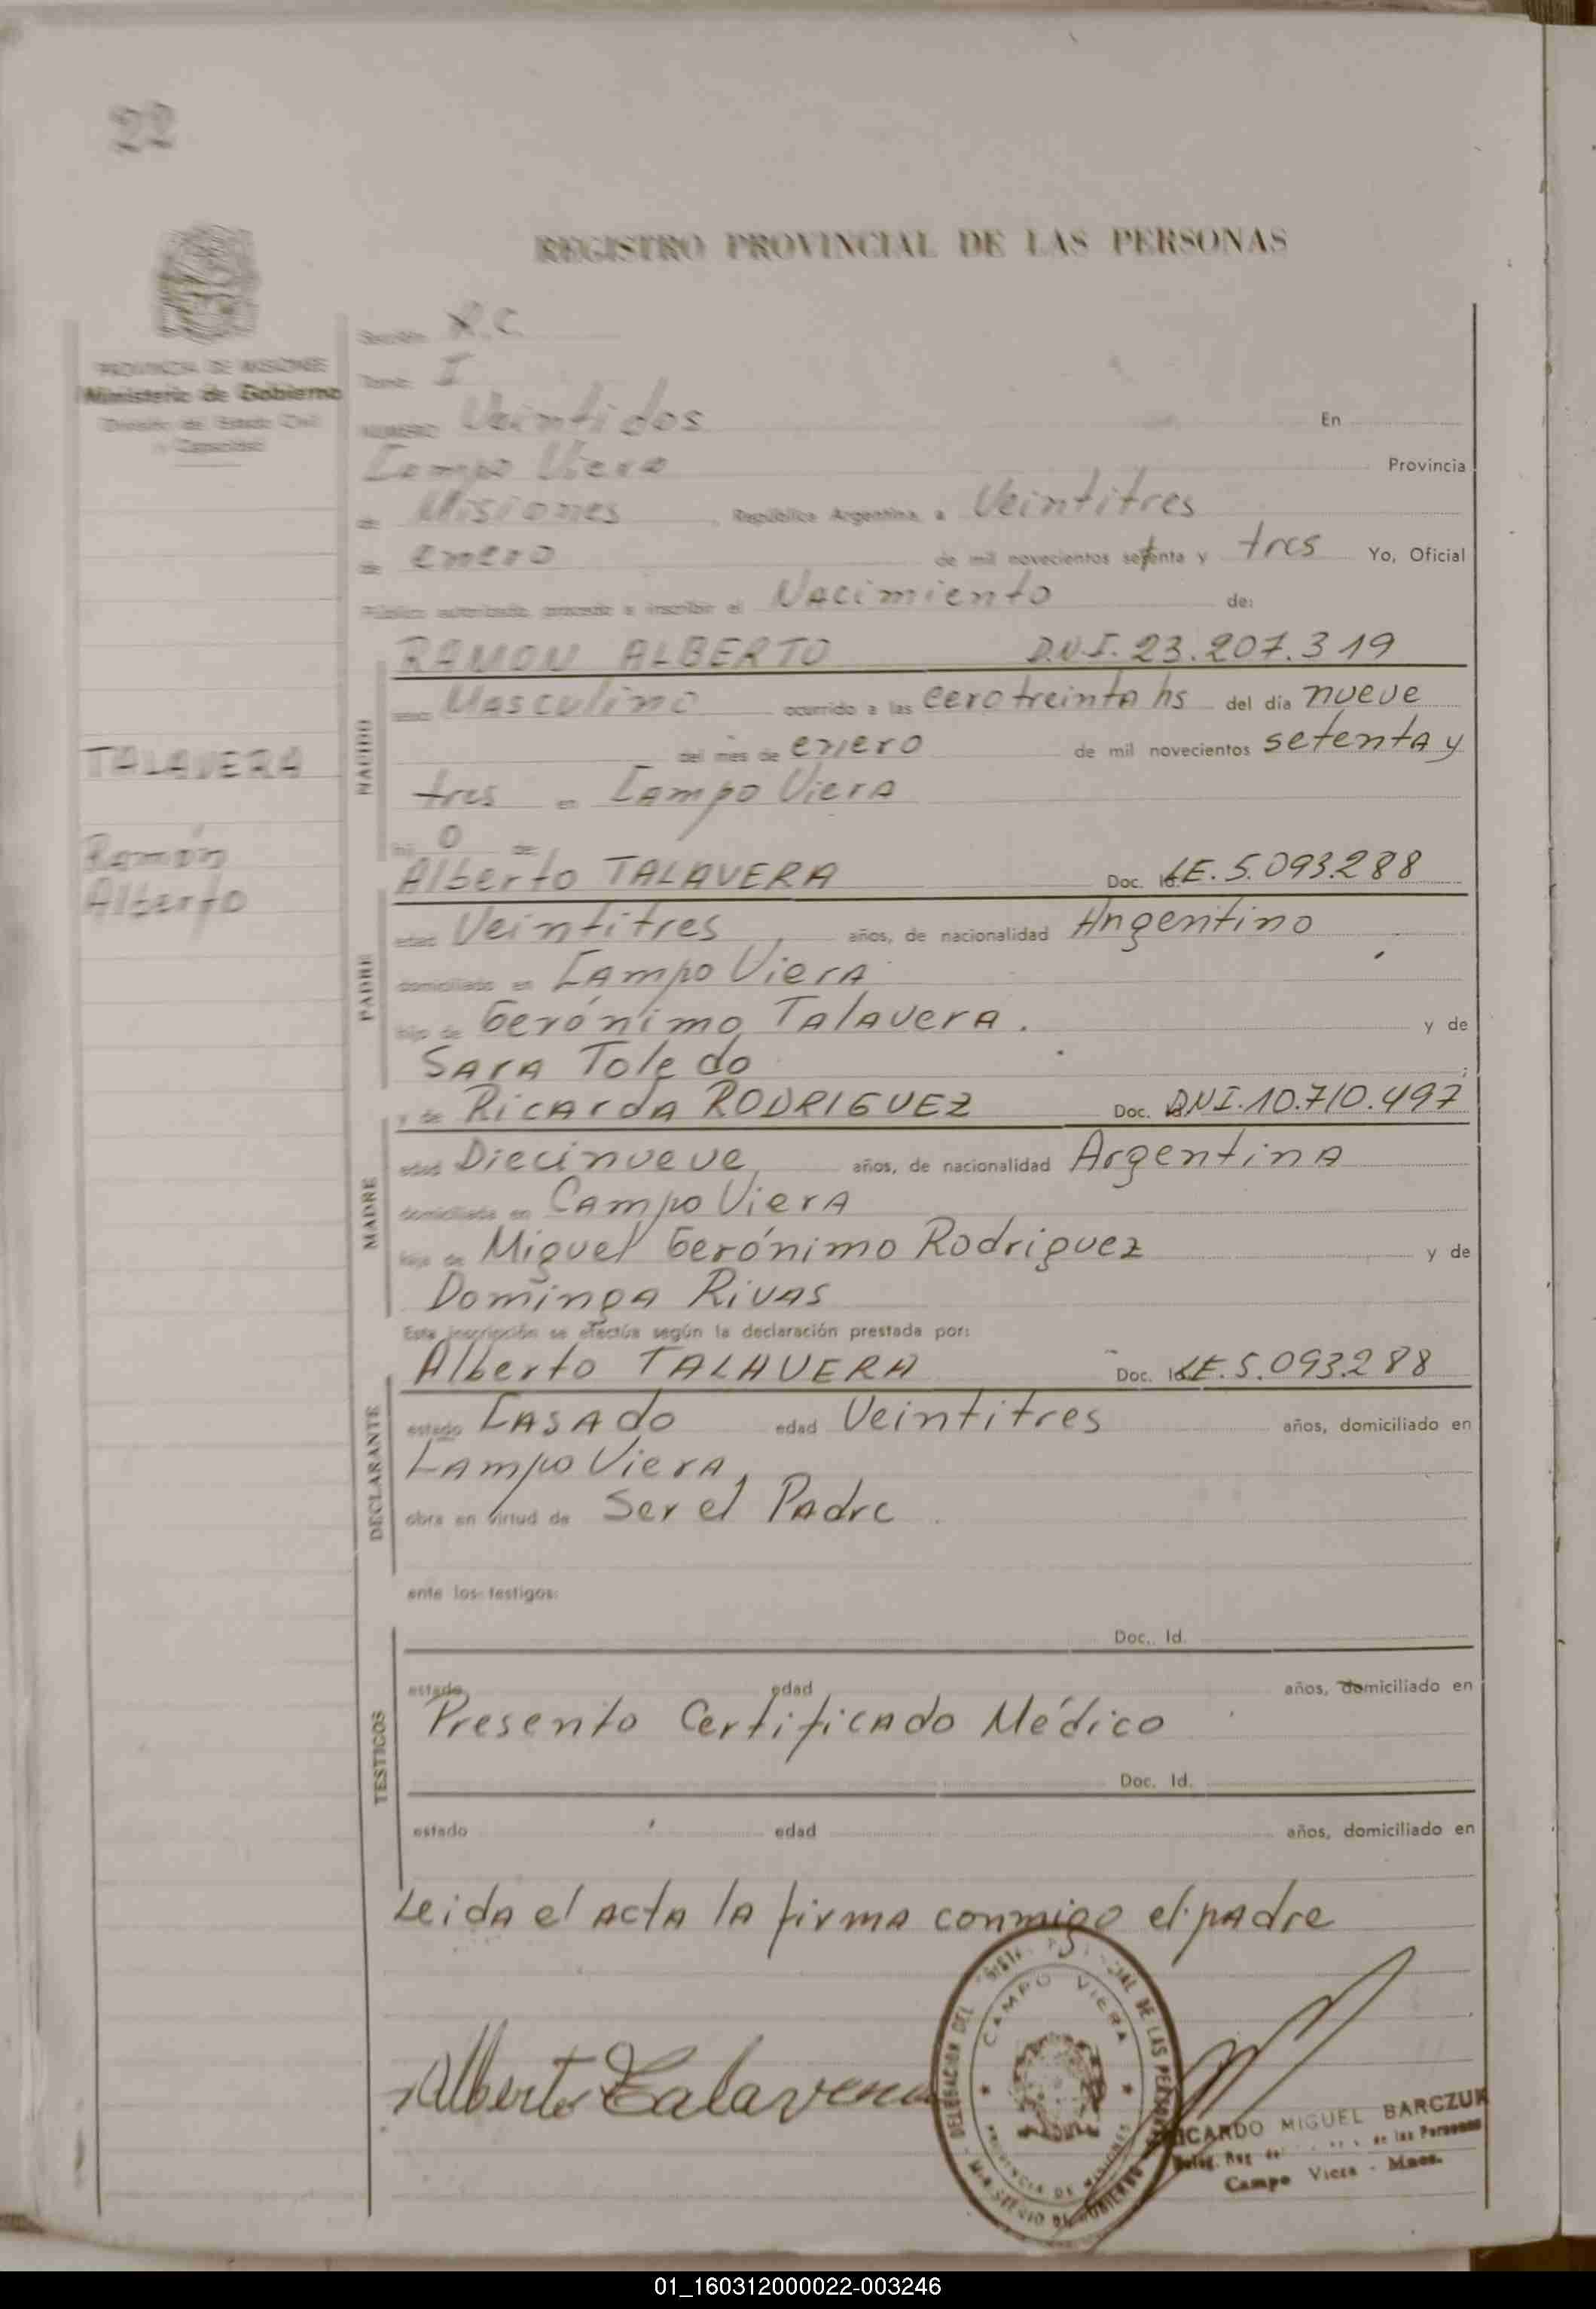 22
REGISTRO PROVINCIAL DE LAS PERSONAS
PROVINCIA DE MISIONES
Ministerio de Gobierno
División de Estado Civil
y Capacidad
TALAVERA
Ramón
Alberto
Sección R.C.
Tomo I
NUMERO Veintidos En
Campo Viera Provincia
de Misiones, República Argentina, a Veintitres
de enero de mil novecientos setenta y tres Yo, Oficial
Público autorizado, procedo a inscribir el Nacimiento de:
NACIDO
RAMON ALBERTO D.N.I. 23.207.319
sexo Masculino ocurrido a las cero treinta hs del día nueve
del mes de enero de mil novecientos setenta y
tres en Campo Viera
hij o de
PADRE
Alberto TALAVERA Doc. Id. LE. 5.093.288
edad Veintitres, años, de nacionalidad Argentino
domiciliado en Campo Viera
hijo de Gerónimo Talavera. y de
Sara Toledo ;
MADRE
y de Ricarda RODRIGUEZ Doc. DNI. 10.710.497
edad Diecinueve, años, de nacionalidad Argentina
domiciliada en Campo Viera
hija de Miguel Gerónimo Rodriguez y de
Dominga Rivas
Esta inscripción se efectúa según la declaración prestada por:
DECLARANTE
Alberto TALAVERA Doc. Id. LE. 5.093.288
estado Casado edad Veintitres años, domiciliado en
Campo Viera,
obra en virtud de Ser el Padre
ante los testigos:
TESTIGOS
Doc. Id.
estado edad años, domiciliado en
Presento Certificado Médico
Doc. Id.
estado edad años, domiciliado en
Leida el acta la firma conmigo el padre
Alberto Talavera
DELEGACION DEL REGISTRO PROVINCIAL DE LAS PERSONAS
CAMPO VIERA
PROVINCIA DE MISIONES
MINISTERIO DE GOBIERNO
RICARDO MIGUEL BARCZUK
Deleg. Reg. de las Personas
Campo Viera - Mnes.
01_160312000022-003246